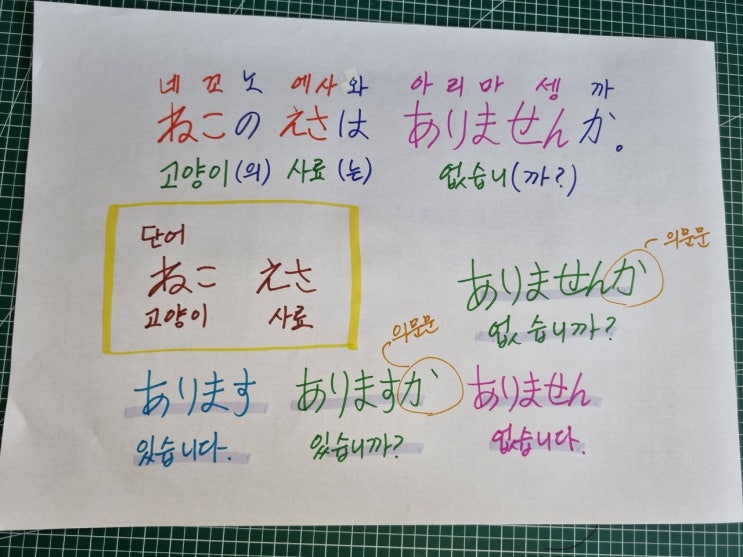 네 꼬 노 에사 와 아 리 마 셍 까
ねこの えさは ありませんか。
고양이(의) 사료(는) 없습니(까?)
단어
ねこ えさ
고양이 사료
의문문
ありませんか
없습니까?
의문문
あります ありますか ありません
있습니다. 있습니까? 없습니다.